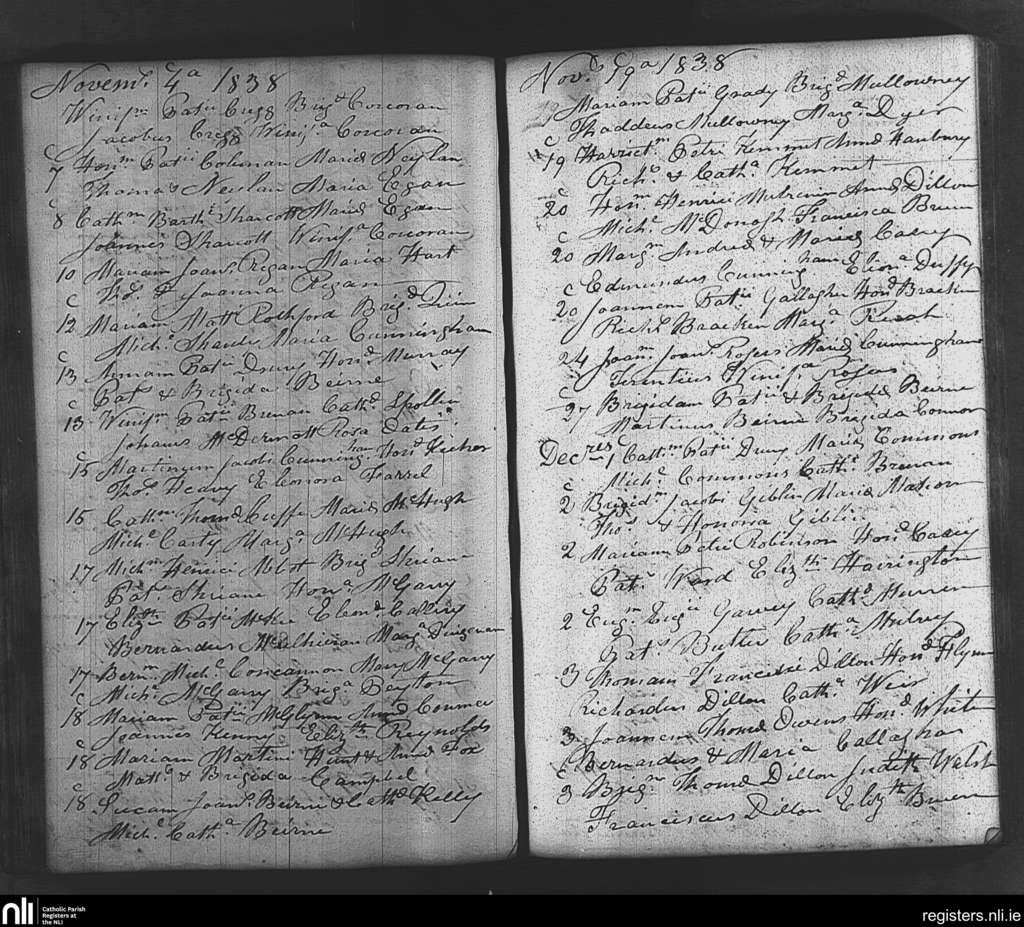 Novemr. 4a 1838
Winifm Patii Cregg Brigd Corcoran
Jacobus Cregg Winifa Corcoran
c
7 Honm Patii Coleman Mariæ Neylan
Thomas Neylan Maria Egan
c
8 Cathm Barthi Sharcott Mariæ Egan
Joannes Sharcott Winifa Corcoran
10 Mariam Joans. Regan Maria Hart
c Thos. & Joanna Regan
12 Mariam Matt Rochford Brigd
Michl Maria Cunningham
c
13 Annam Patii Drury Honæ Murray
c Pat & Brigida Beirne
13 Winifm Patii Brenan Cathæ Spollen
Johanes McDermott Rosa
c
15 Martinum Jacobi Cunningham Honæ
Thos. Heavy Eleonora Farrel
15 Cathm Thomæ Cuffe Mariæ McHugh
Michl Carty Marga McHugh
17 Michm Henrici Abot Brigd
Patk Hona McGarry
17 Elizth Patii McKue Elenæ Callery
Bernardus Marga
17 Bernm Michl Concannon Mary McGarry
c Michl McGarry Briga Peyton
18 Mariam Patii McGlynn Annæ Connor
Joannes Kenny Elizth Reynolds
c
18 Mariam Martini Hunt & Annæ Fox
c Matts & Brigida Campbel
18 Lucam Joans. Beirne & Cathæ Kelly
Michl Catha Beirne
Novr. 19a 1838
Mariam Patii Grady Brigd Mullowney
Thaddeus Mullowney Marga Dyer
c
19 Harrietm Petri Kemmet Annæ Hanbury
Richd. & Catha Kemmet
c
20 Honm Henrici Mulrenin Annæ Dillon
Michl McDonogh Francisca Bruen
c
20 Margm Andreæ & Mariæ Casey
c Edmundus Cunningham Eliona Duffy
20 Joannem Patii Gallagher Honæ Bracken
Richd. Bracken Marga
24 Joanm Joans. Rogers Mariæ Cunningham
Terentius Winifa Rogers
c
27 Brigidam Patii & Brigidæ Beirne
Martinus Beirne Brigida Connor
Decres 1 Cathm Patii Drury Mariæ Commons
c Michl Commons Catha Brenan
2 Brigidm Jacobi Giblin Mariæ
Thos. & Honoria Giblin
2 Mariam Petri Robinson Honæ Casey
Patk Ward Elizth Harrington
2 Eugm Eugii Garvey Cathæ
Patk Butler Catha Mulrey
3 Thomam Francisci Dillon Honæ Flynn
Richardus Dillon Catha Weir
3 Joannem Thomæ Owens Honæ White
c Bernardus & Maria Callaghan
3 Brigm Thomæ Dillon Judith Walsh
Franciscus Dillon Elizth Bruen
nli
Catholic Parish
Registers at
the NLI
registers.nli.ie